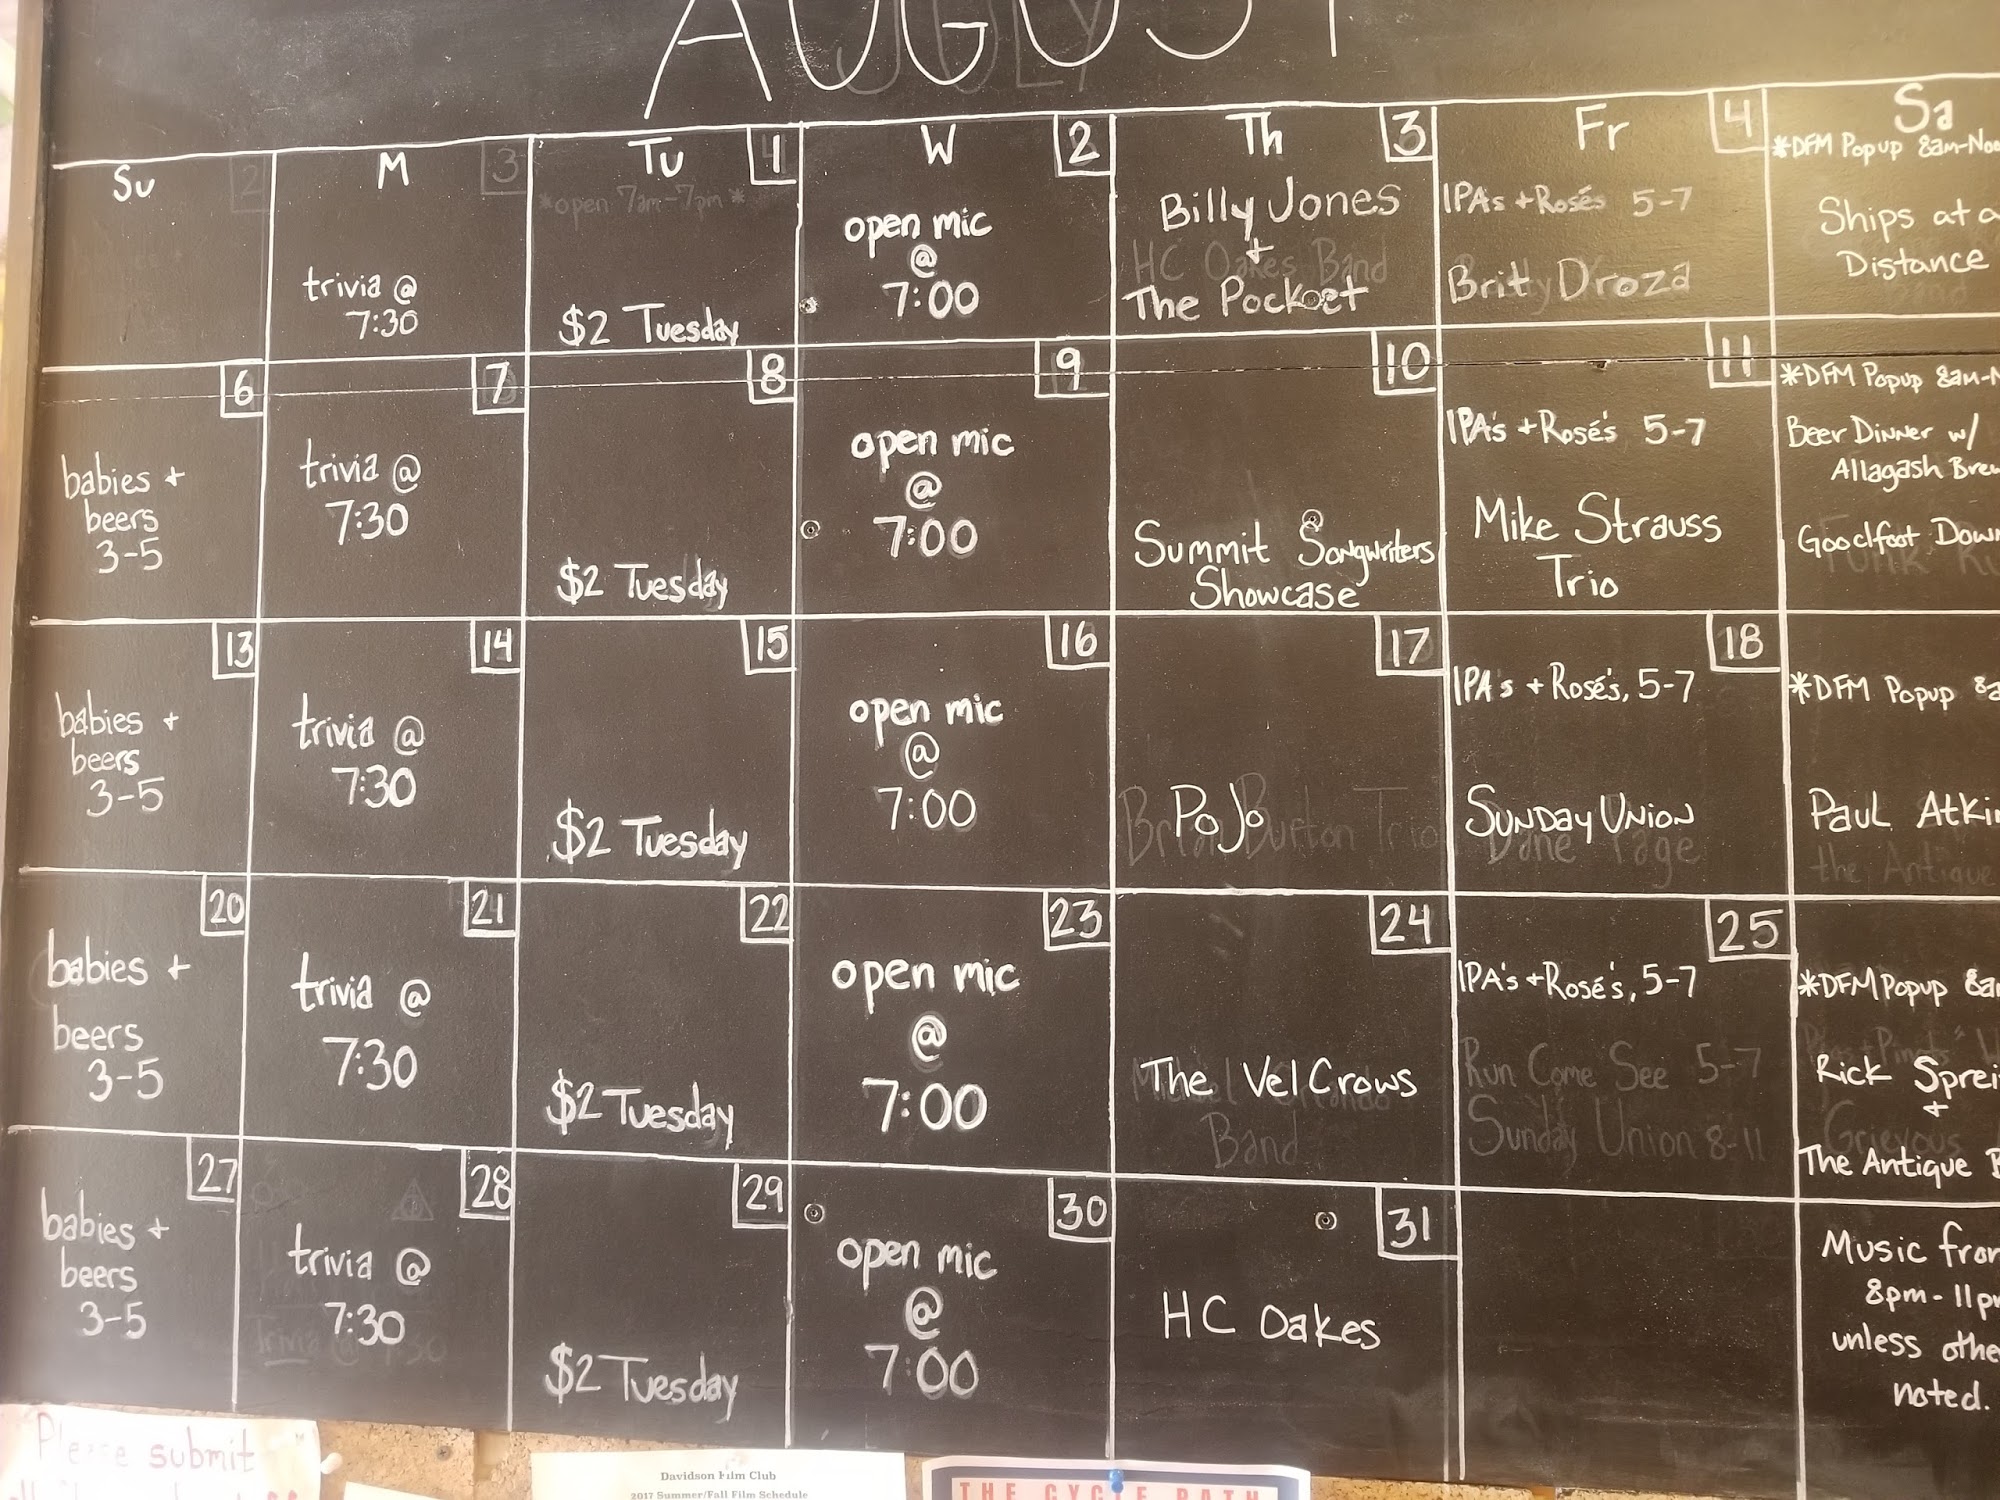 AUGUST
Su M Tu 1 W 2 Th 3 Fr 4 Sa
*DFM Popup 8am-Noo
trivia @
7:30
*open 7am-7pm*
$2 Tuesday
open mic
@
7:00
Billy Jones
+
HC Oakes Band
The Pocket
IPAs + Rosés 5-7
Britt Droza
Ships at a
Distance
6 7 8 9 10 11
babies +
beers
3-5
trivia @
7:30
$2 Tuesday
open mic
@
7:00
Summit Songwriters
Showcase
IPA's + Rosé's 5-7
Mike Strauss
Trio
*DFM Popup 8am-N
Beer Dinner w/
Allagash Brew
Goodfoot Down
13 14 15 16 17 18
babies +
beers
3-5
trivia @
7:30
$2 Tuesday
open mic
@
7:00
PoJo
Burton Trio
IPA's + Rosé's, 5-7
Sunday Union
Dane Page
*DFM Popup 8a
Paul Atkin
the Antique
20 21 22 23 24 25
babies +
beers
3-5
trivia @
7:30
$2 Tuesday
open mic
@
7:00
The Vel Crows
Band
IPA's + Rosé's, 5-7
Run Come See 5-7
Sunday Union 8-11
*DFM Popup 8a
Rick Sprei
+
Grievous
The Antique B
27 28 29 30 31
babies +
beers
3-5
trivia @
7:30
$2 Tuesday
open mic
@
7:00
HC Oakes
Music from
8pm-11pm
unless othe
noted.
Please submit
Davidson Film Club
2017 Summer/Fall Film Schedule
THE CYCLE PATH